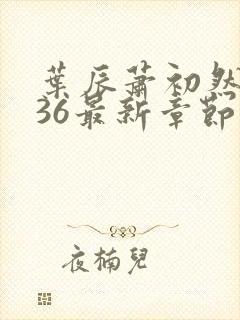 葉辰蕭初然
36最新章節
夜楠兒